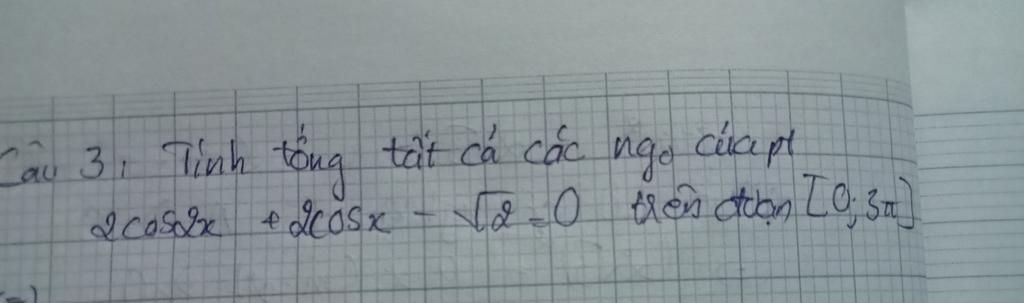 Câu 3, Tính tổng tất cả các ngo của pt
2cos2x + 2cosx - √2 = 0 trên đoạn [0; 3π]
=)